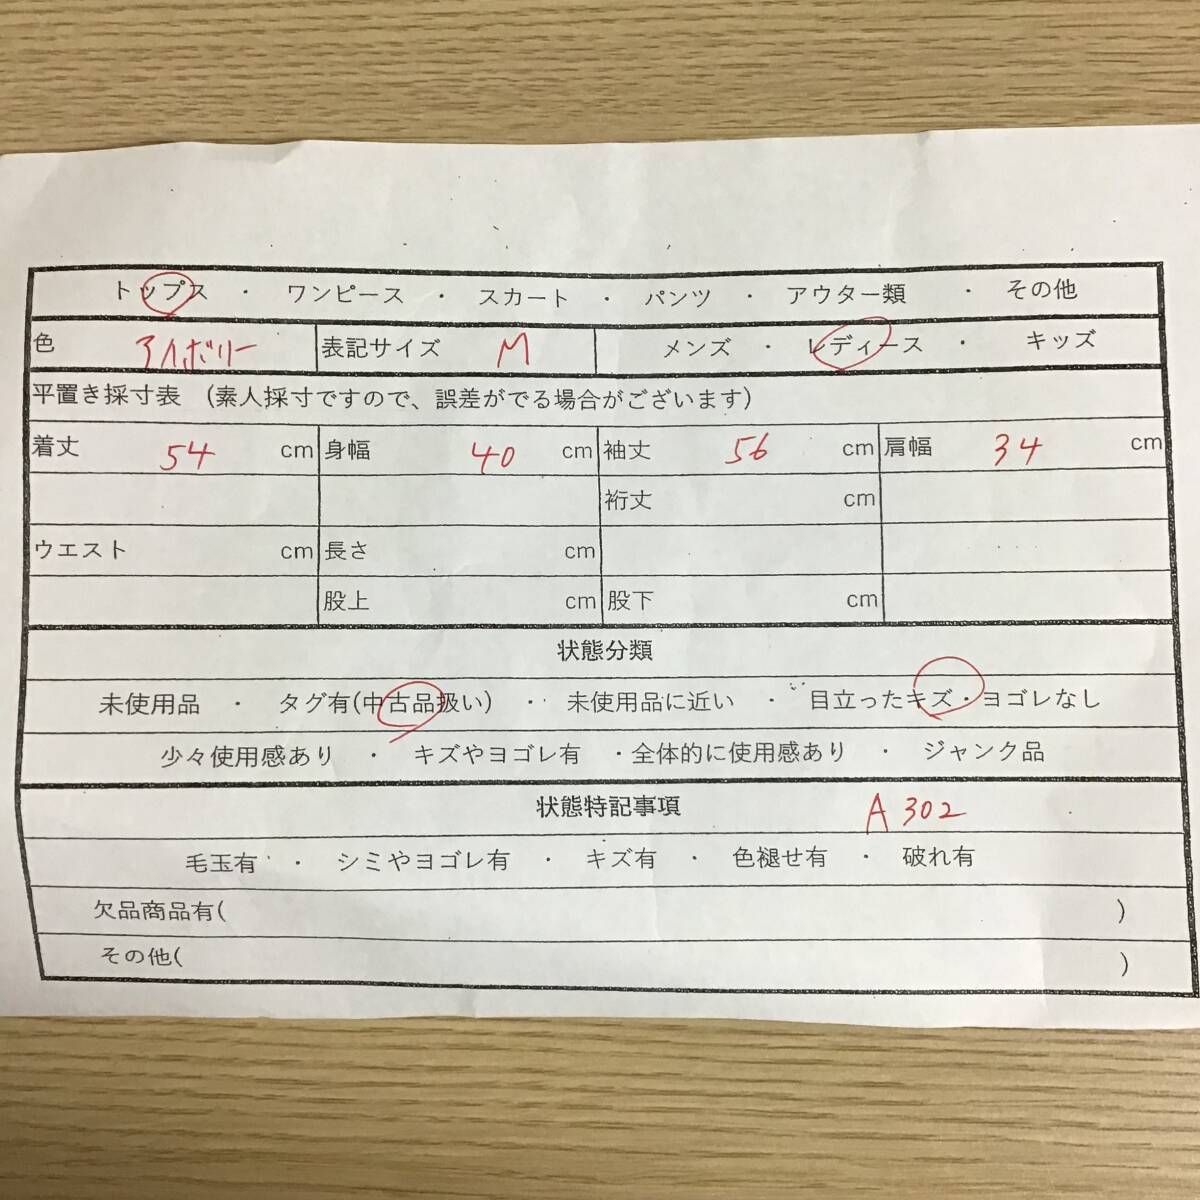 トップス ・ ワンピース ・ スカート ・ パンツ ・ アウター類 ・ その他
色 アイボリー 表記サイズ M メンズ ・ レディース ・ キッズ
平置き採寸表 (素人採寸ですので、誤差がでる場合がございます)
着丈 54 cm 身幅 40 cm 袖丈 56 cm 肩幅 34 cm
裄丈 cm
ウエスト cm 長さ cm
股上 cm 股下 cm
状態分類
未使用品 ・ タグ有(中古品扱い) ・ 未使用品に近い ・ 目立ったキズ・ヨゴレなし
少々使用感あり ・ キズやヨゴレ有 ・全体的に使用感あり ・ ジャンク品
状態特記事項 A 302
毛玉有 ・ シミやヨゴレ有 ・ キズ有 ・ 色褪せ有 ・ 破れ有
欠品商品有( )
その他( )